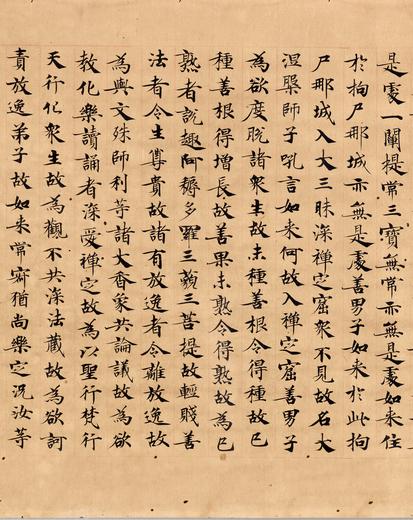 是處一闡提常三寶無常亦無是處如来住
於拘尸那城亦無是處善男子如来於此拘
尸那城入大三昧深禪定窟衆不見故名大
涅槃師子吼言如来何故入禪定窟善男子
為欲度脫諸衆生故未種善根令得種故已
種善根得增長故善果未熟令得熟故為已
熟者說趣阿耨多羅三藐三菩提故輕賤善
法者令生尊貴故諸有放逸者令離放逸故
為與文殊師利等諸大香象共論議故為欲
教化樂讀誦者深愛禪定故為以聖行梵行
天行化衆生故為觀不共深法藏故為欲訶
責放逸弟子故如来常寂猶尚樂定況汝等